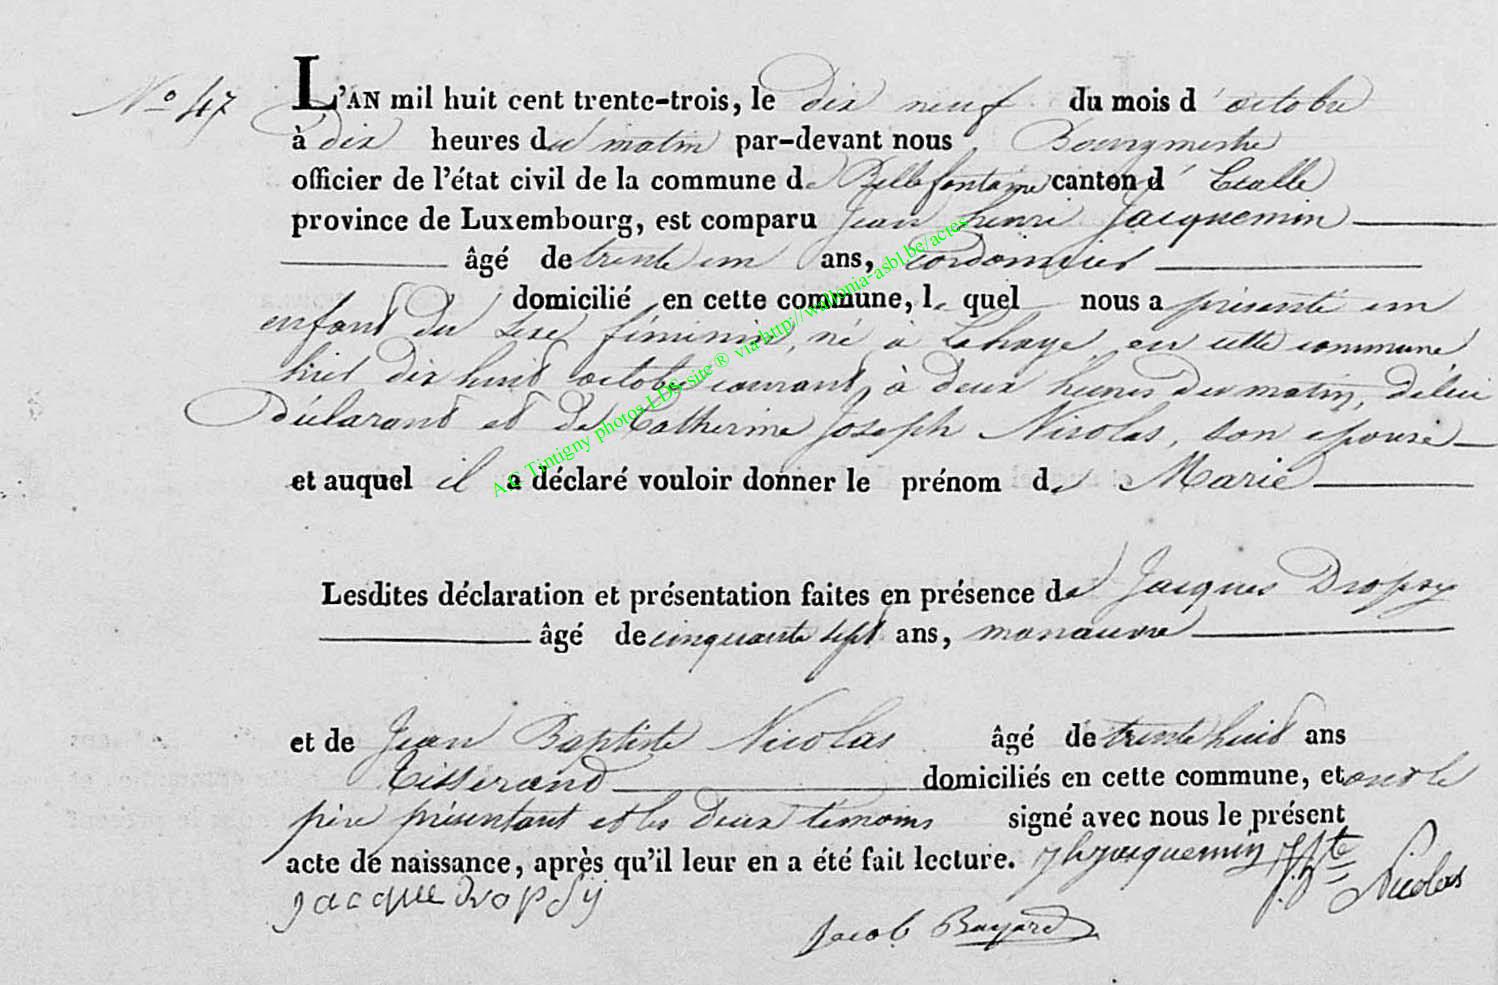 N.° 47
L'AN mil huit cent trente-trois, le dix neuf du mois d'octobre
à dix heures du matin par-devant nous Bourgmestre
officier de l'état civil de la commune de Bellefontaine canton d'Etalle
province de Luxembourg, est comparu Jean henri Jacquemin
âgé de trente un ans, Cordonnier
domicilié en cette commune, lequel nous a présenté un
enfant du sexe féminin, né à Lahage en cette commune
hier dix huit octobre courant, à deux heures du matin, de lui
déclarant et de Catherine Joseph Nicolas, son epouse
et auquel il a déclaré vouloir donner le prénom de Marie
Lesdites déclaration et présentation faites en présence de Jacques Dropsy
âgé de cinquante sept ans, manœuvre
et de Jean Baptiste Nicolas âgé de trente huit ans
Tisserand domiciliés en cette commune, et ont le
père présentant et les deux témoins signé avec nous le présent
acte de naissance, après qu'il leur en a été fait lecture. jhjacquemin J. Bte Nicolas
jacque dropsy
Jacob Bayard
A.C Tintigny photos LDS site ® via http://wallonia-asbl.be/actes